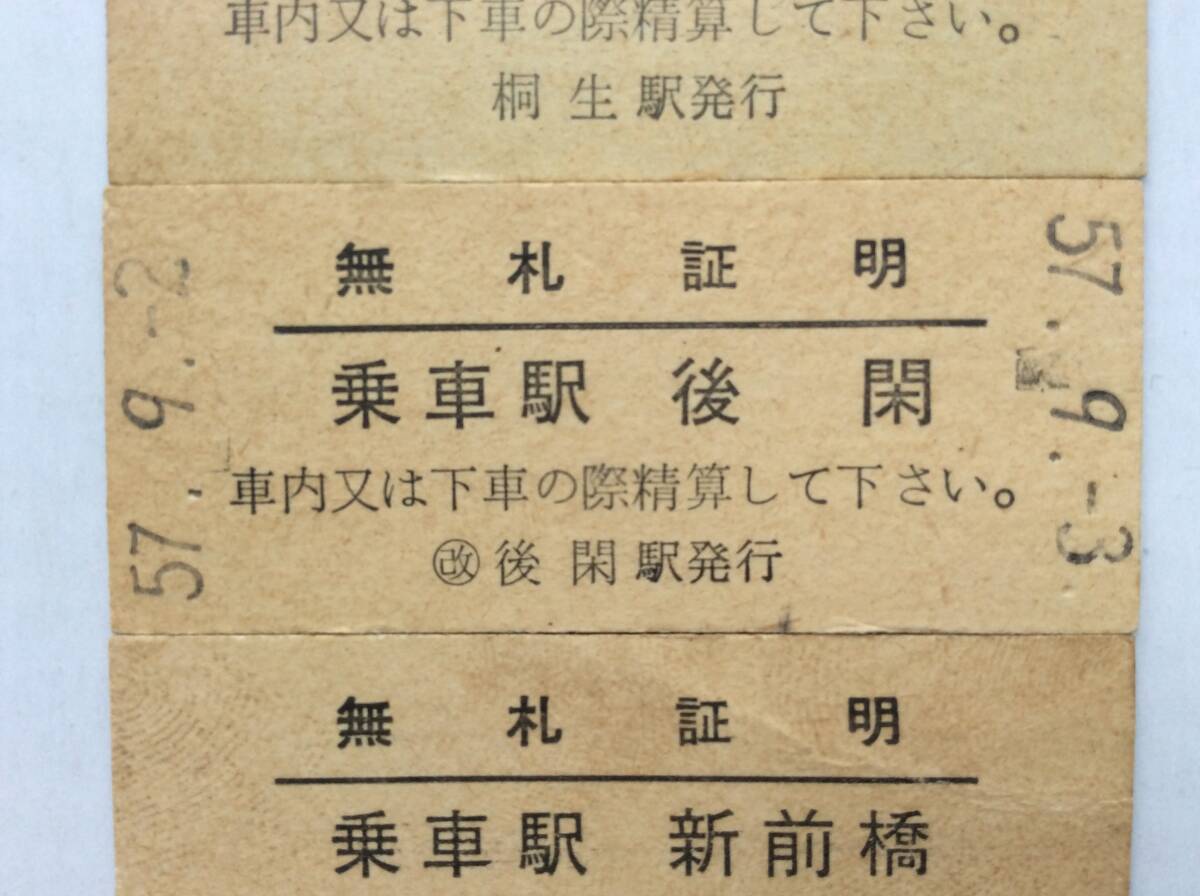 車内又は下車の際精算して下さい。
桐生駅発行
無札証明
乗車駅 後閑
車内又は下車の際精算して下さい。
㊢後閑駅発行
57.9.-2
57.9.-3
無札証明
乗車駅 新前橋